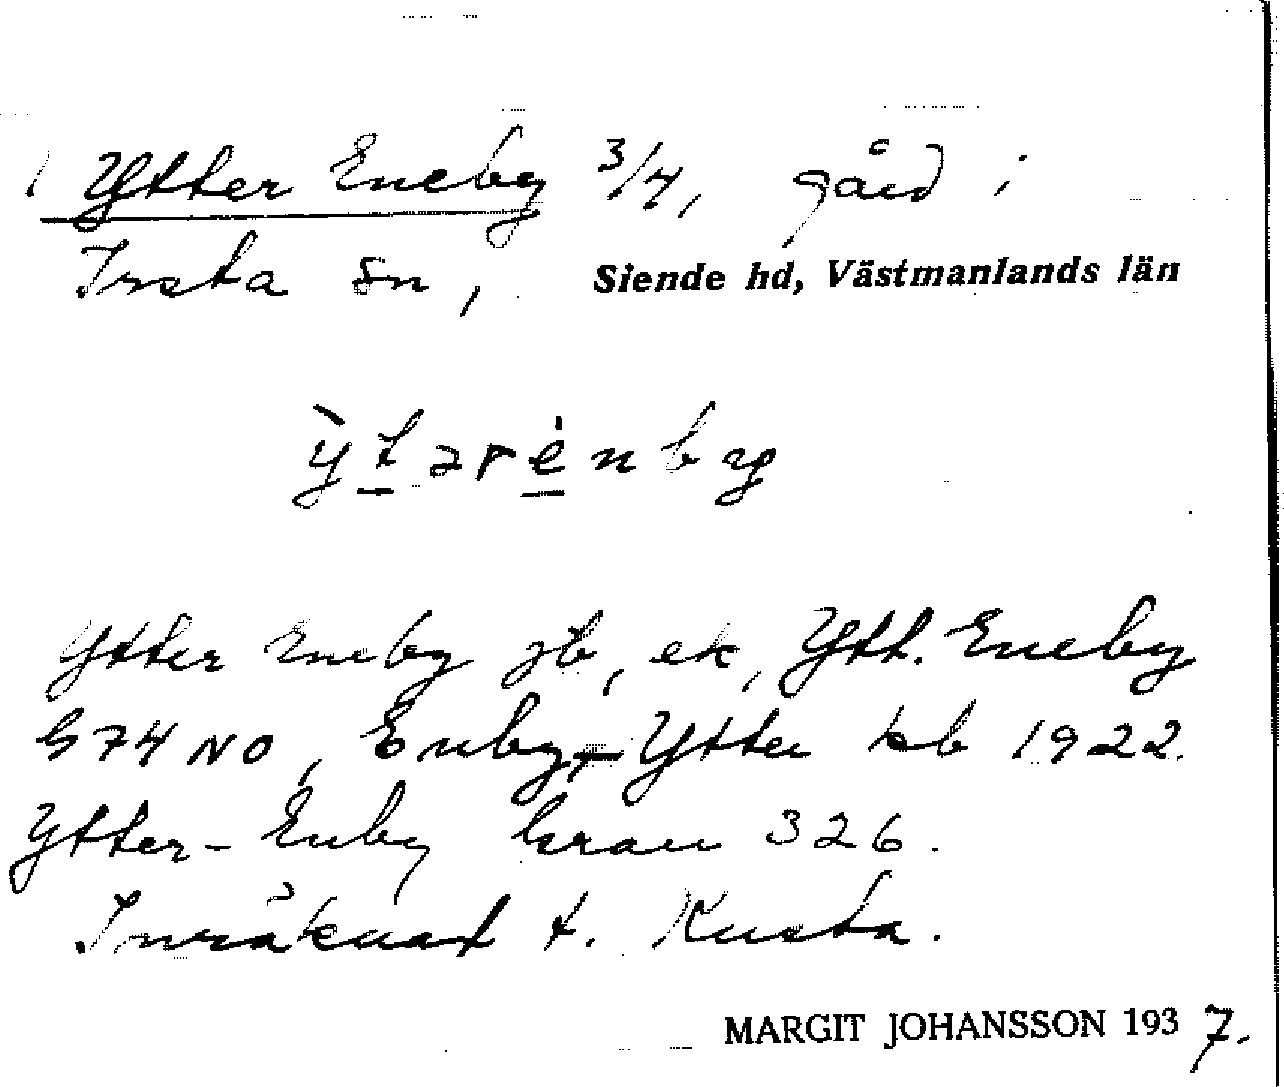 Ytter Eneby 3/4, gård i
Irsta sn, Siende hd, Västmanlands län
ỳtarénby
Ytter Eneby jb, ek, Ytt. Eneby
G74NO, Enby-Ytter kb 1922.
Ytter-Enby Gran 326.
Inräknat t. Kusta.
MARGIT JOHANSSON 1937.